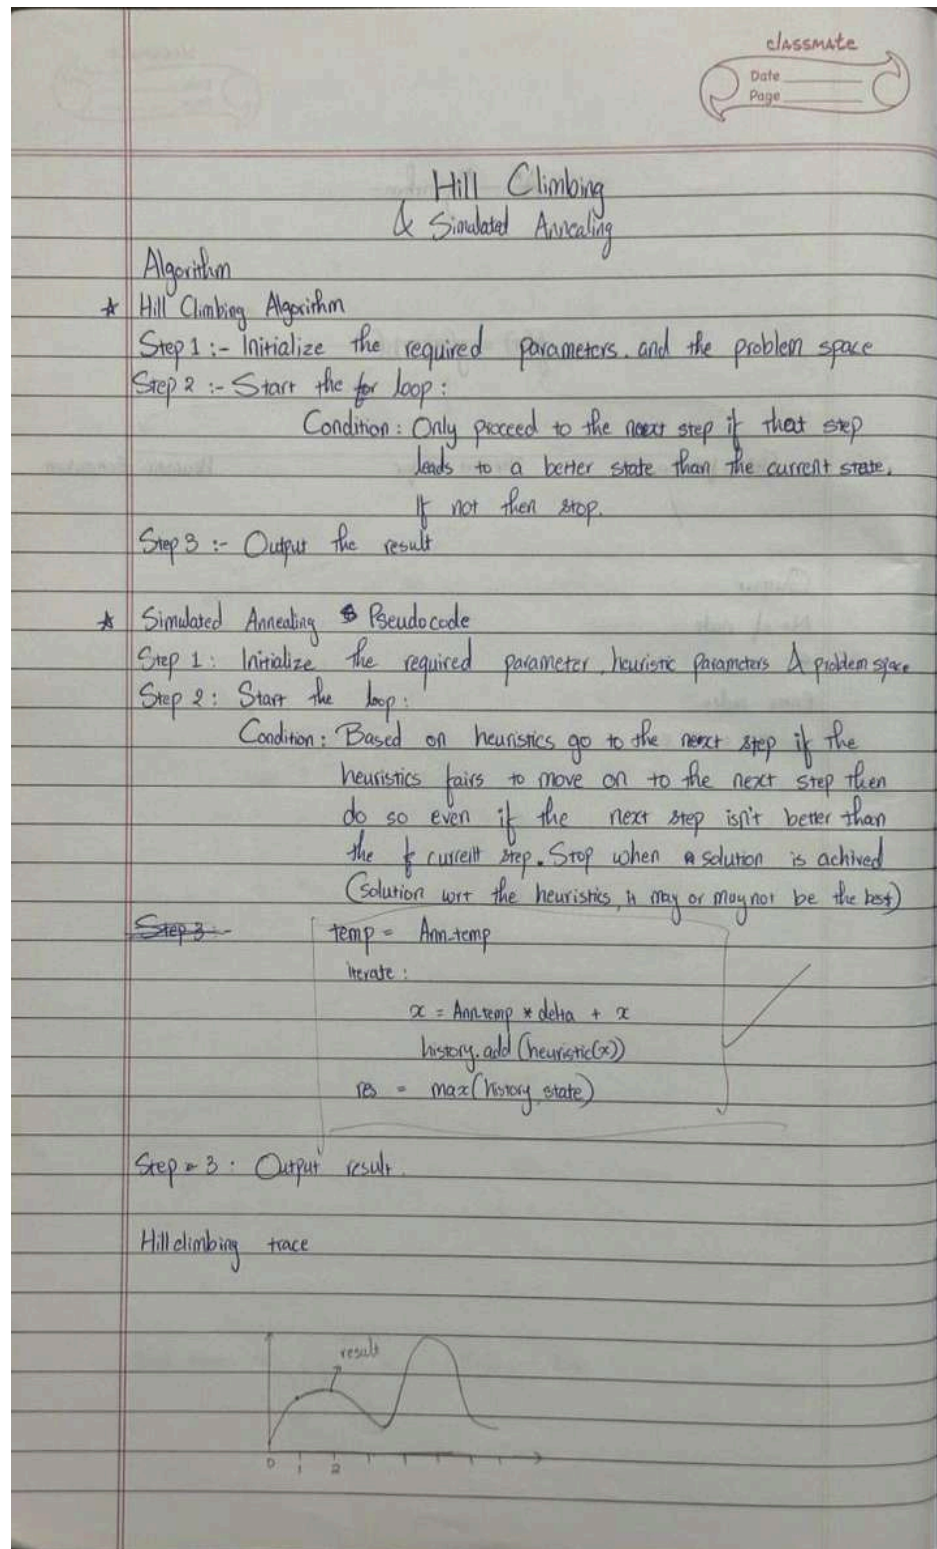 classmate
Date
Page
Hill Climbing
& Simulated Annealing
Algorithm
★ Hill Climbing Algorithm
Step 1 :- Initialize the required parameters. and the problem space
Step 2 :- Start the for loop :
Condition : Only proceed to the next step if that step
leads to a better state than the current state.
If not then stop.
Step 3 :- Output the result
★ Simulated Annealing Pseudocode
Step 1 : Initialize the required parameter, heuristic parameters & problem space
Step 2 : Start the loop :
Condition : Based on heuristics go to the next step if the
heuristics fairs to move on to the next step then
do so even if the next step isn't better than
the current step. Stop when a solution is achived
(solution wrt the heuristics, it may or may not be the best)
Step 3 :-
temp = Ann.temp
iterate :
x = Ann.temp * delta + x
history.add (heuristic(x))
res = max(history, state)
Step - 3 : Output result.
Hill climbing trace
result
0 1 2